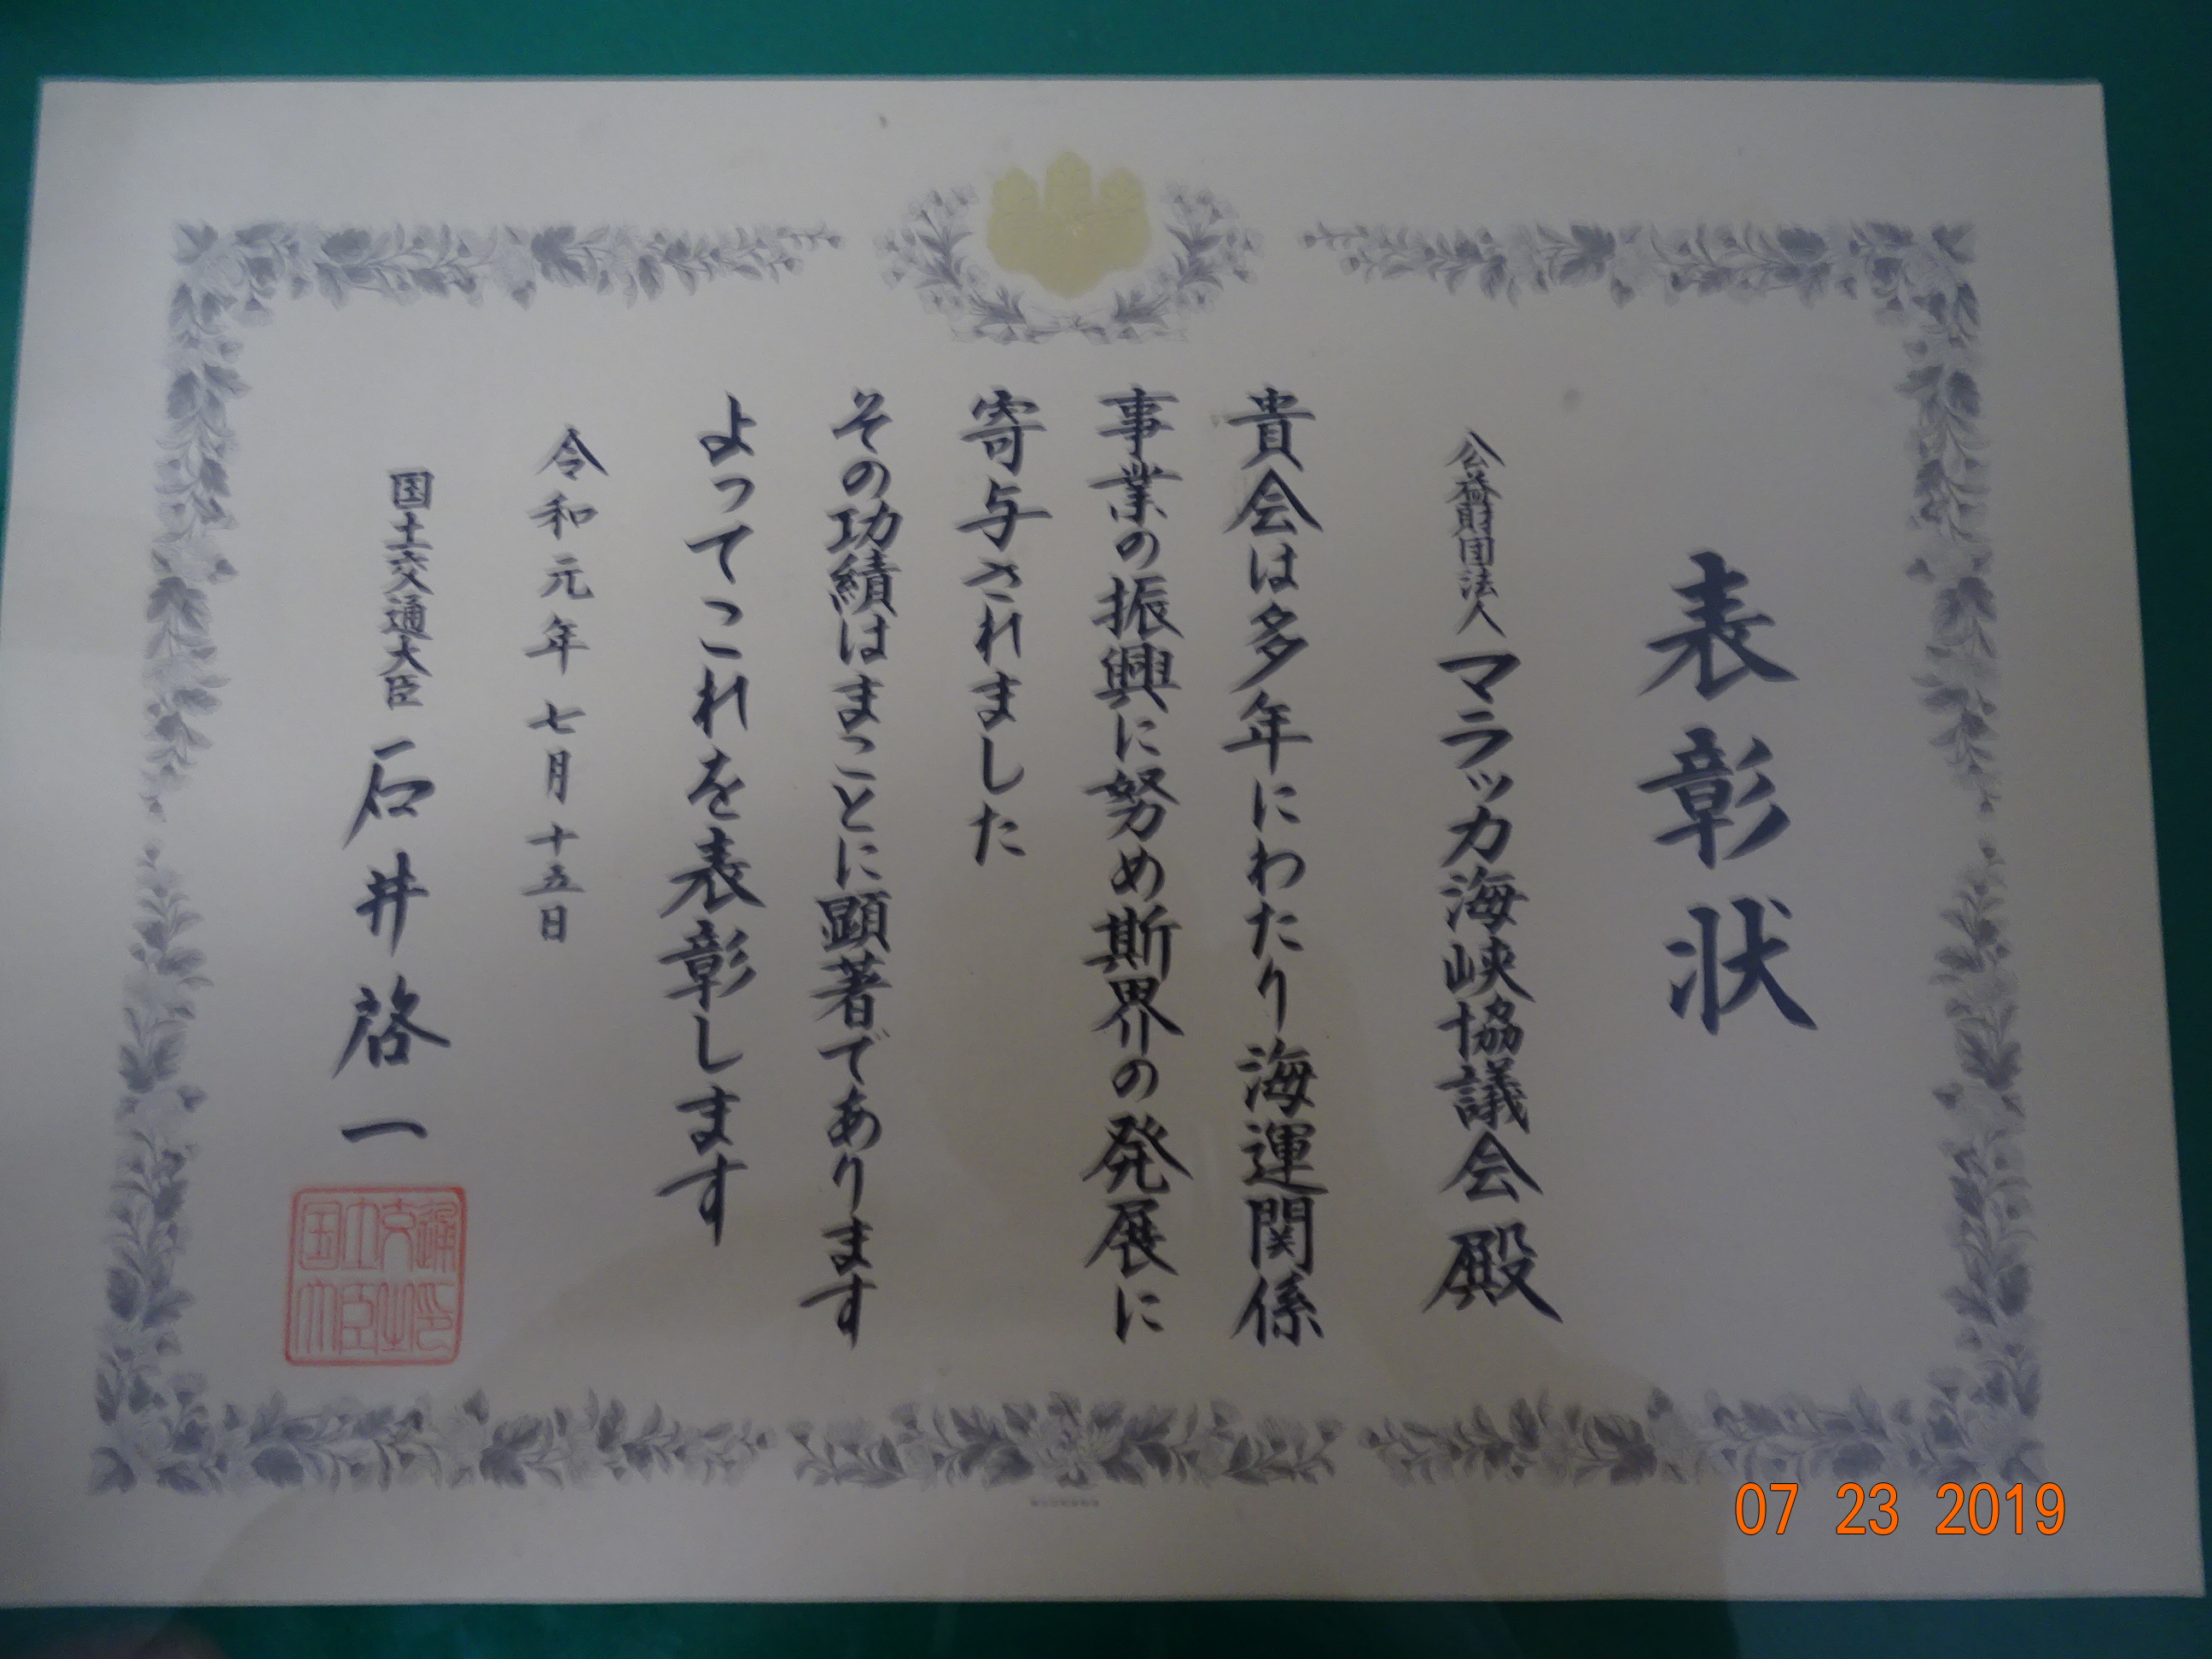 表彰状
公益財団法人 マラッカ海峡協議会殿
貴会は多年にわたり海運関係
事業の振興に努め斯界の発展に
寄与されました
その功績はまことに顕著であります
よってこれを表彰します
令和元年七月十五日
国土交通大臣 石井啓一
国土交通
大臣之印
07 23 2019